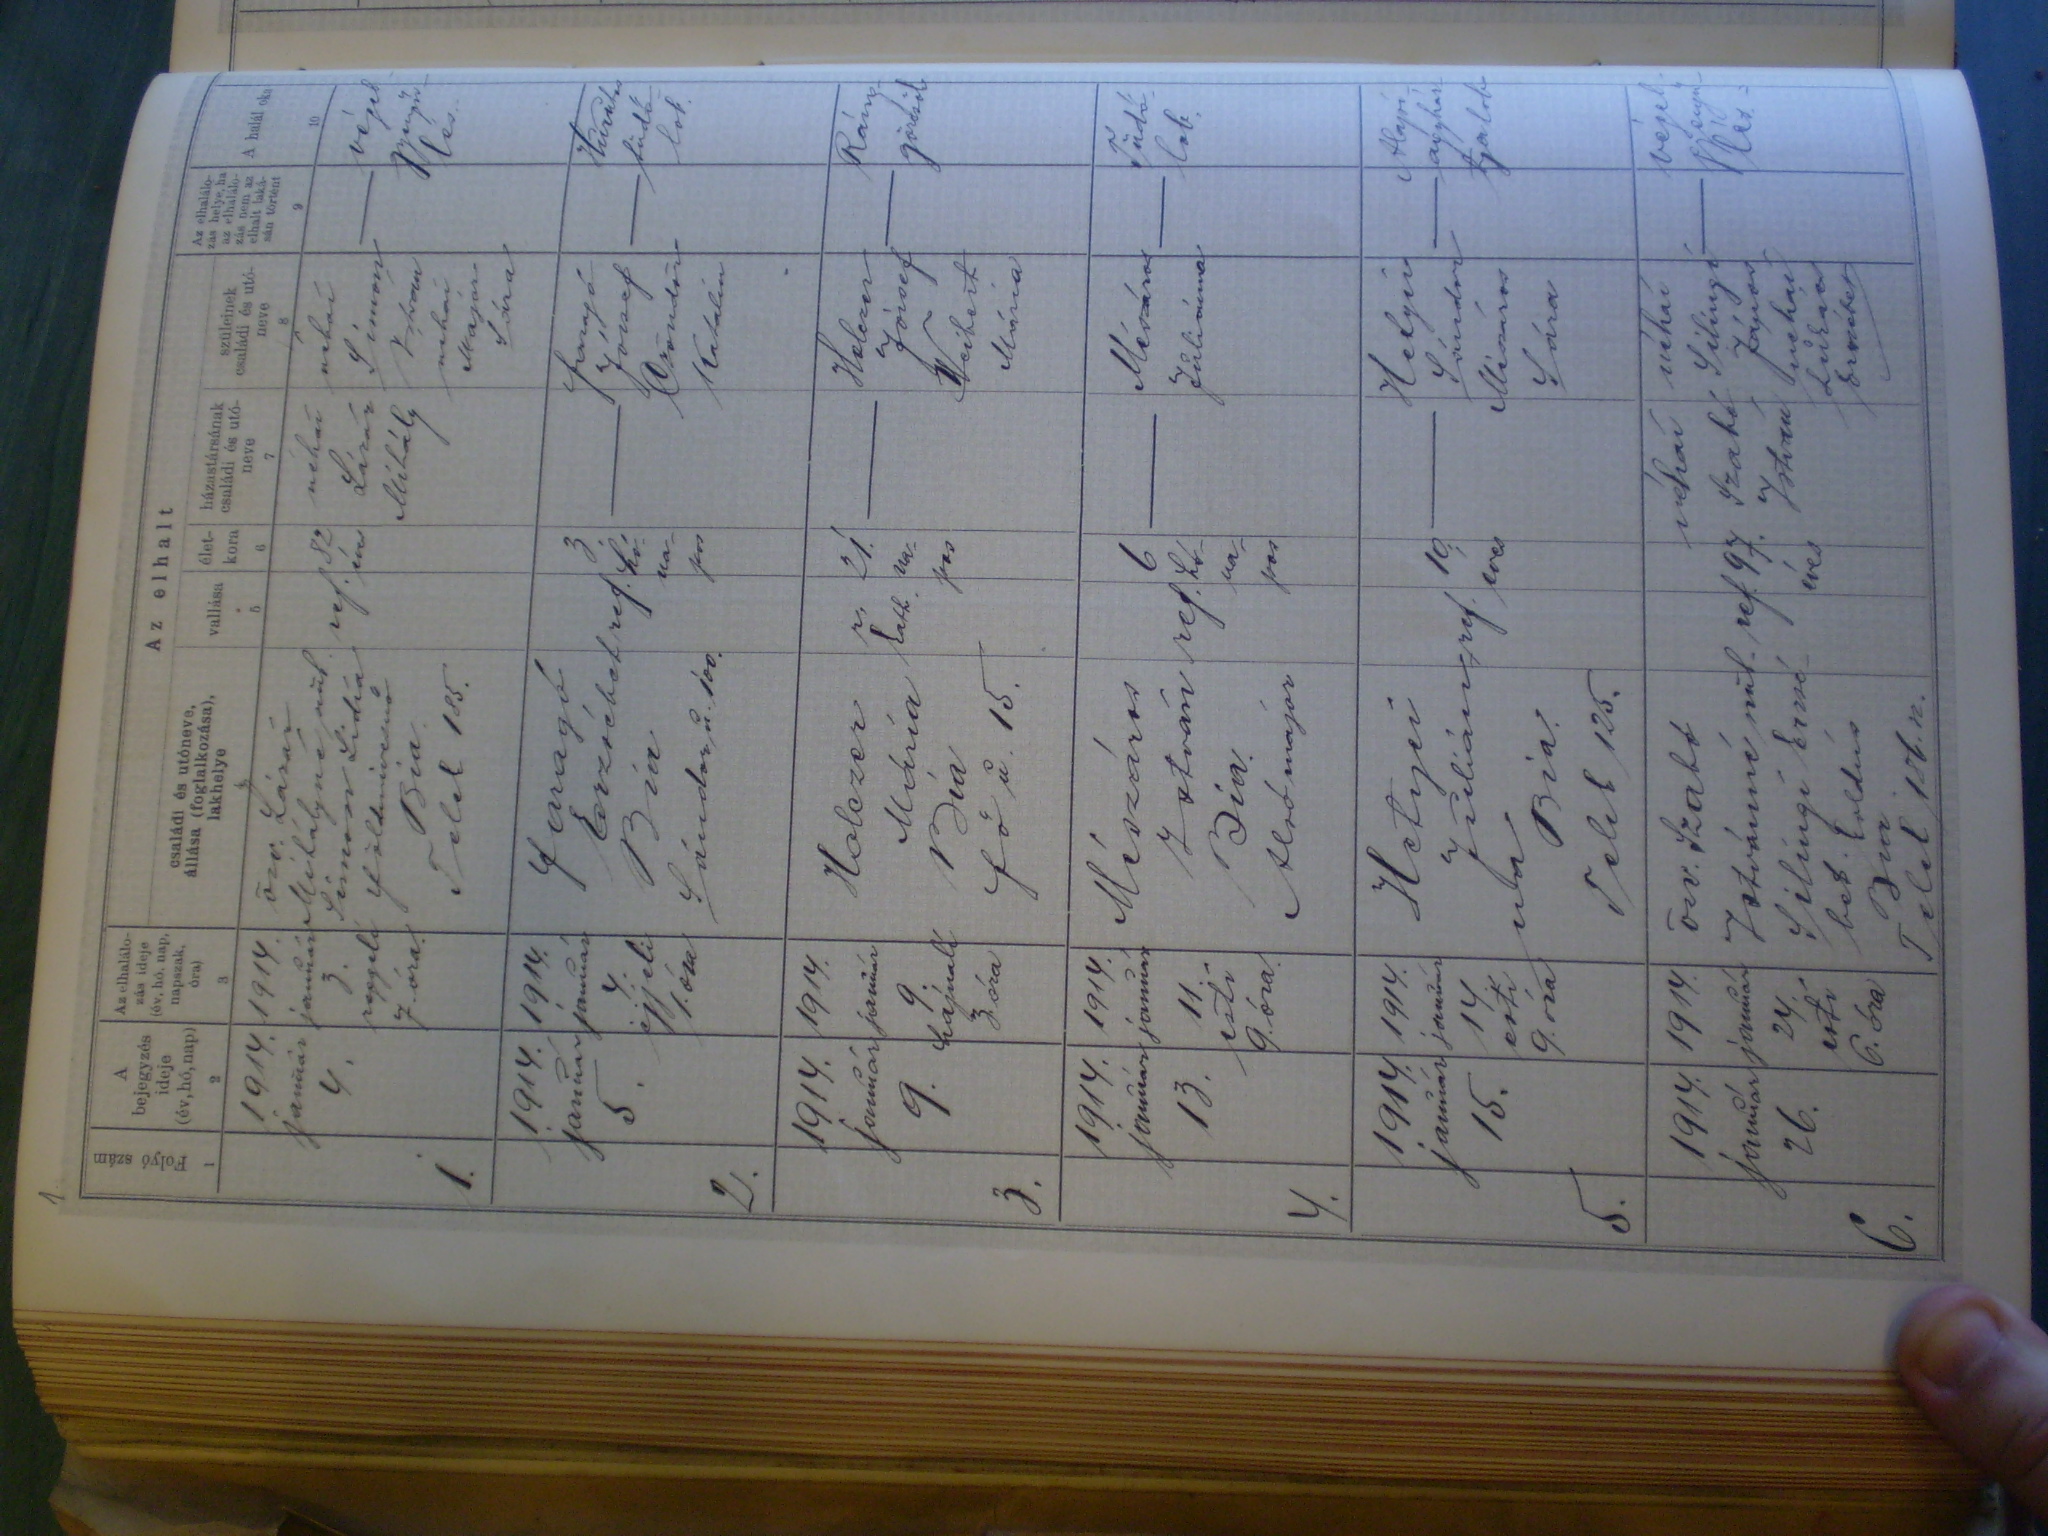 1.
Az elhalt
Folyó szám
A bejegyzés ideje (év, hó, nap)
Az elhalálo-
zás ideje
(év, hó, nap,
napszak,
óra)
családi és utóneve,
állása (foglalkozása),
lakhelye
vallása
élet-
kora
házastársának
családi és utó-
neve
szüleinek
családi és utó-
neve
Az elhaláló-
zás helye, ha
az elhaláló-
zás nem az
elhalt laká-
sán történt
A halál oka
1
2
3
4
5
6
7
8
9
10
1.
1914.
január
4.
1914.
január
3.
reggeli
7 óra
özv. Lázár
Mihályné szül.
Simon Lidia
földmívesnő
Bia
Telek 185.
ref.
82
éves
néhai
Lázár
Mihály
néhai
Simon
István
néhai
Sára
végel-
gyengü-
lés.
2.
1914.
január
5.
1914.
január
4.
éjjeli
1. óra
Faragó
Erzsébet
Bia
Sándor u. 100.
ref.
3
hó-
na-
pos
Faragó
József
Katalin
tüdő-
lob.
3.
1914.
január
9.
1914.
január
9.
hajnali
3 óra
Holczer
Mária
Bia
Fő u. 15.
r.
kath.
21.
na-
pos
Holczer
József
Mária
Ráng-
görcsök
4.
1914.
január
13.
1914.
január
11.
esti
9. óra
Mészáros
István
Bia.
Alsó major
ref.
6
hó-
na-
pos
Mészáros
Juliánna
Tüdő-
lob.
5.
1914.
január
15.
1914.
január
14
esti
9. óra
Hetyei
Juliánna
Bia.
Telek 125.
ref.
10
éves
Hetyei
Sándor
Mészáros
Sára
agyhár-
tyalob
6.
1914.
január
26.
1914
január
24.
esti
6. óra
özv. Szabó
Istvánné szül.
Silingi Erzsé-
bet.
Bia
Telek 186. sz.
ref.
97.
éves
néhai
Szabó
István
néhai
Silingi
János
néhai
Erzsébet
végel-
gyengü-
lés.